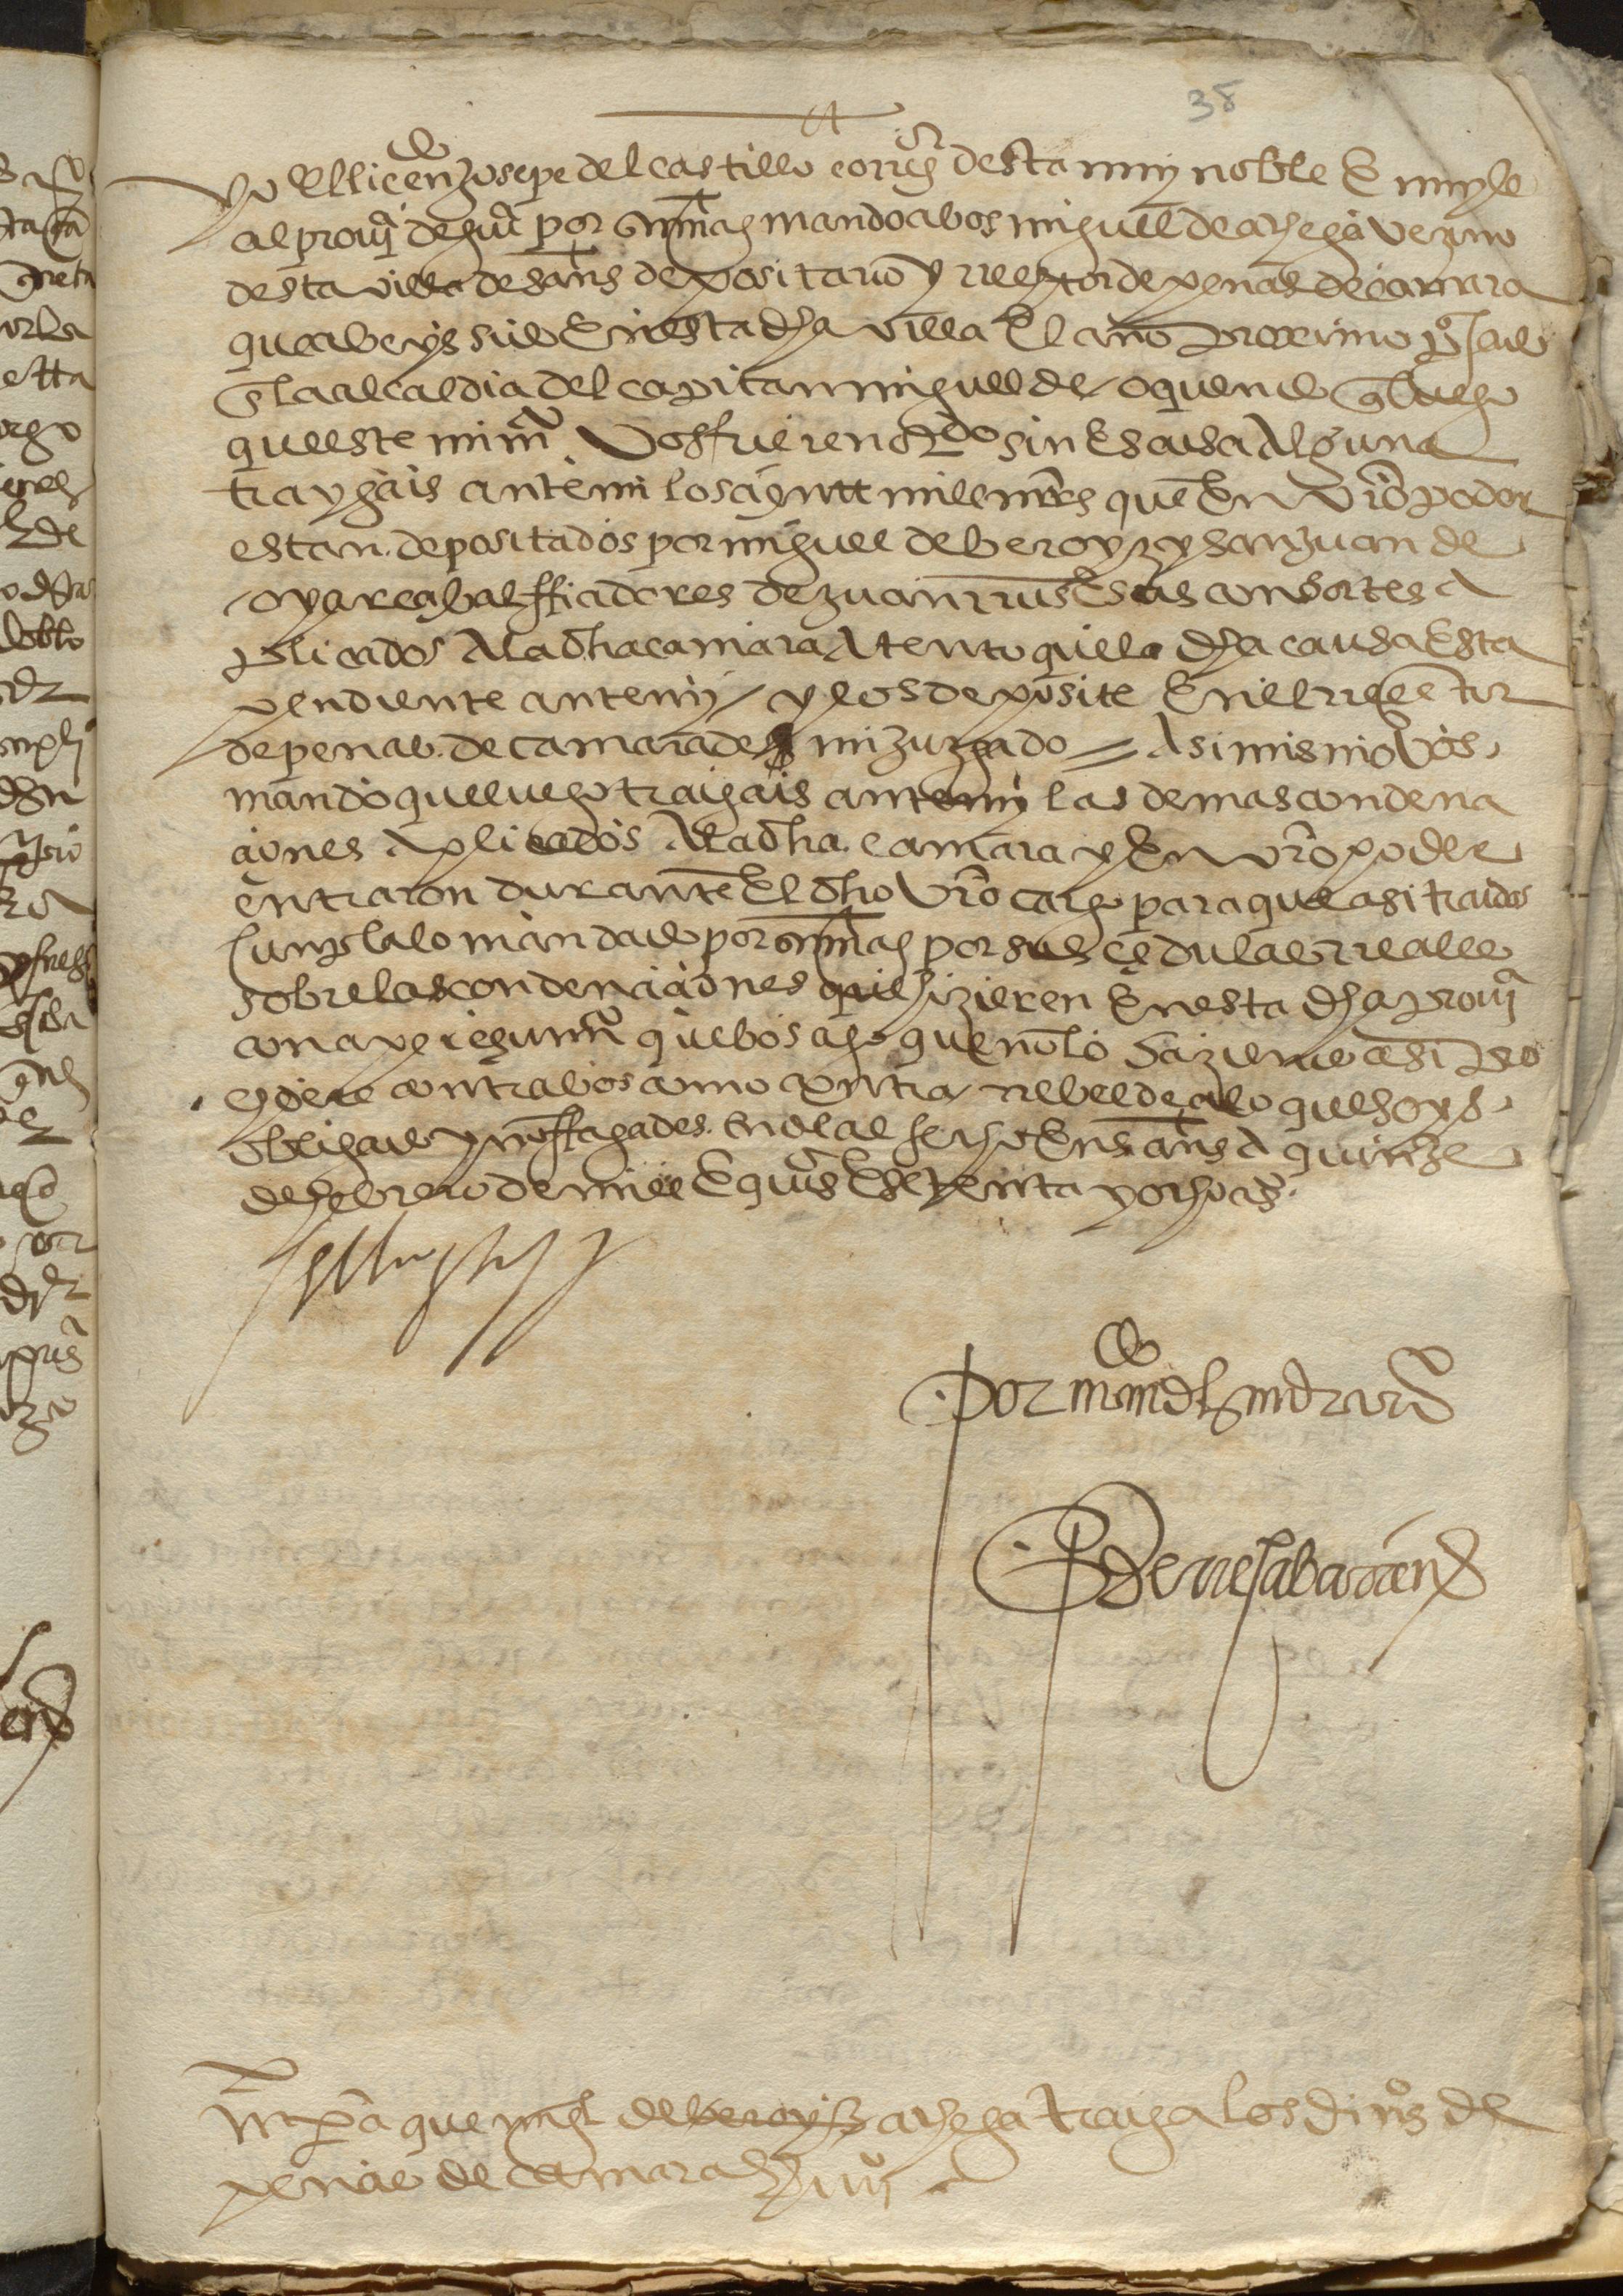 38
Yo El licen.do Josepe del castillo corr.or desta muy noble E muy le
al prou.a de gui.a por su m.t mando a bos miguel de arhega vezino
desta villa de sans depositario y rreceptor de penas de camara
que abeys sido En esta dha villa El año proximo p.o sado
En la alcaldia del capitan miguel de oquendo q luego
que este mi m.o Vos fuere n.do sin Escusa Alguna
traygais ante mi los mill mrs que En vro poder
estan depositados por miguel de beroyz y sanjuan de
oyarcabal ffiadores de juan rruis Es as consortes A
plicados A la dha camara Atento que la dha causa Esta
pendiente ante mi / y los deposite En el rrecetor
de penas de camara de mi juzgado = Asi mismo Vos
mando que luego traigais ante mi las demas condena
ciones Aplicados A la dha camara y En vro poder
entraron durante El dho Vro cargo para que asi traidos
cumpla lo mandado por su mag por sus cedulas rreales
sobre las condenaciones que hizieren En esta dha prou.a
con aperceuim.o que bos ago que no lo haziendo asi pro
cedere contra bos como contra rrebelde a lo que soys
obligado y no ffagades Ende al fecho En s. ans A quinze
de hebrero de mill E qui.os E setenta y ocho as.
Por m.do del s.or corr.or
P de yrreçabal
m.o para que migl de beroyz arhega traiga los din.os de
penas de camara